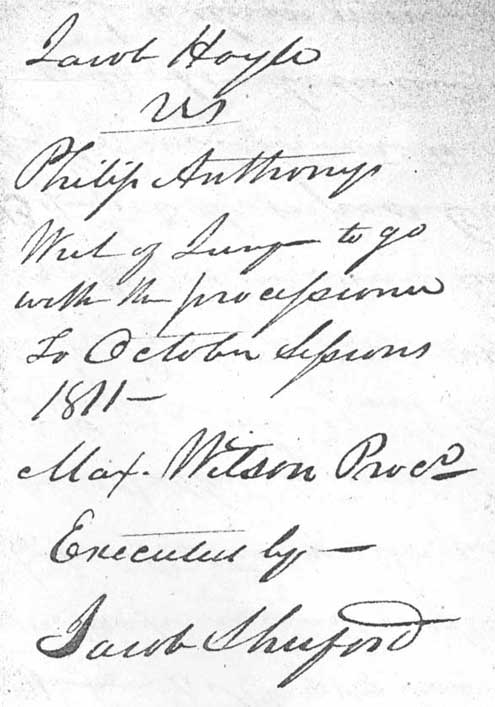 Jacob Hoyle
vs
Philip Anthony
Writ of Jury to go
with the processioner
To October Sessions
1811 —
Max. Wilson Procr
Executed by —
Jacob Shuford